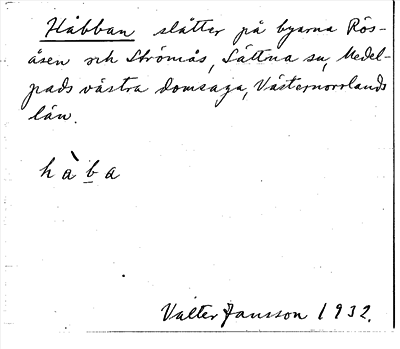 Håbban slåtter på byarna Rös-
åsen och Strömås, Sättna sn, Medel-
pads västra domsaga, Västernorrlands
län.
hàba
Valter Jansson 1932.